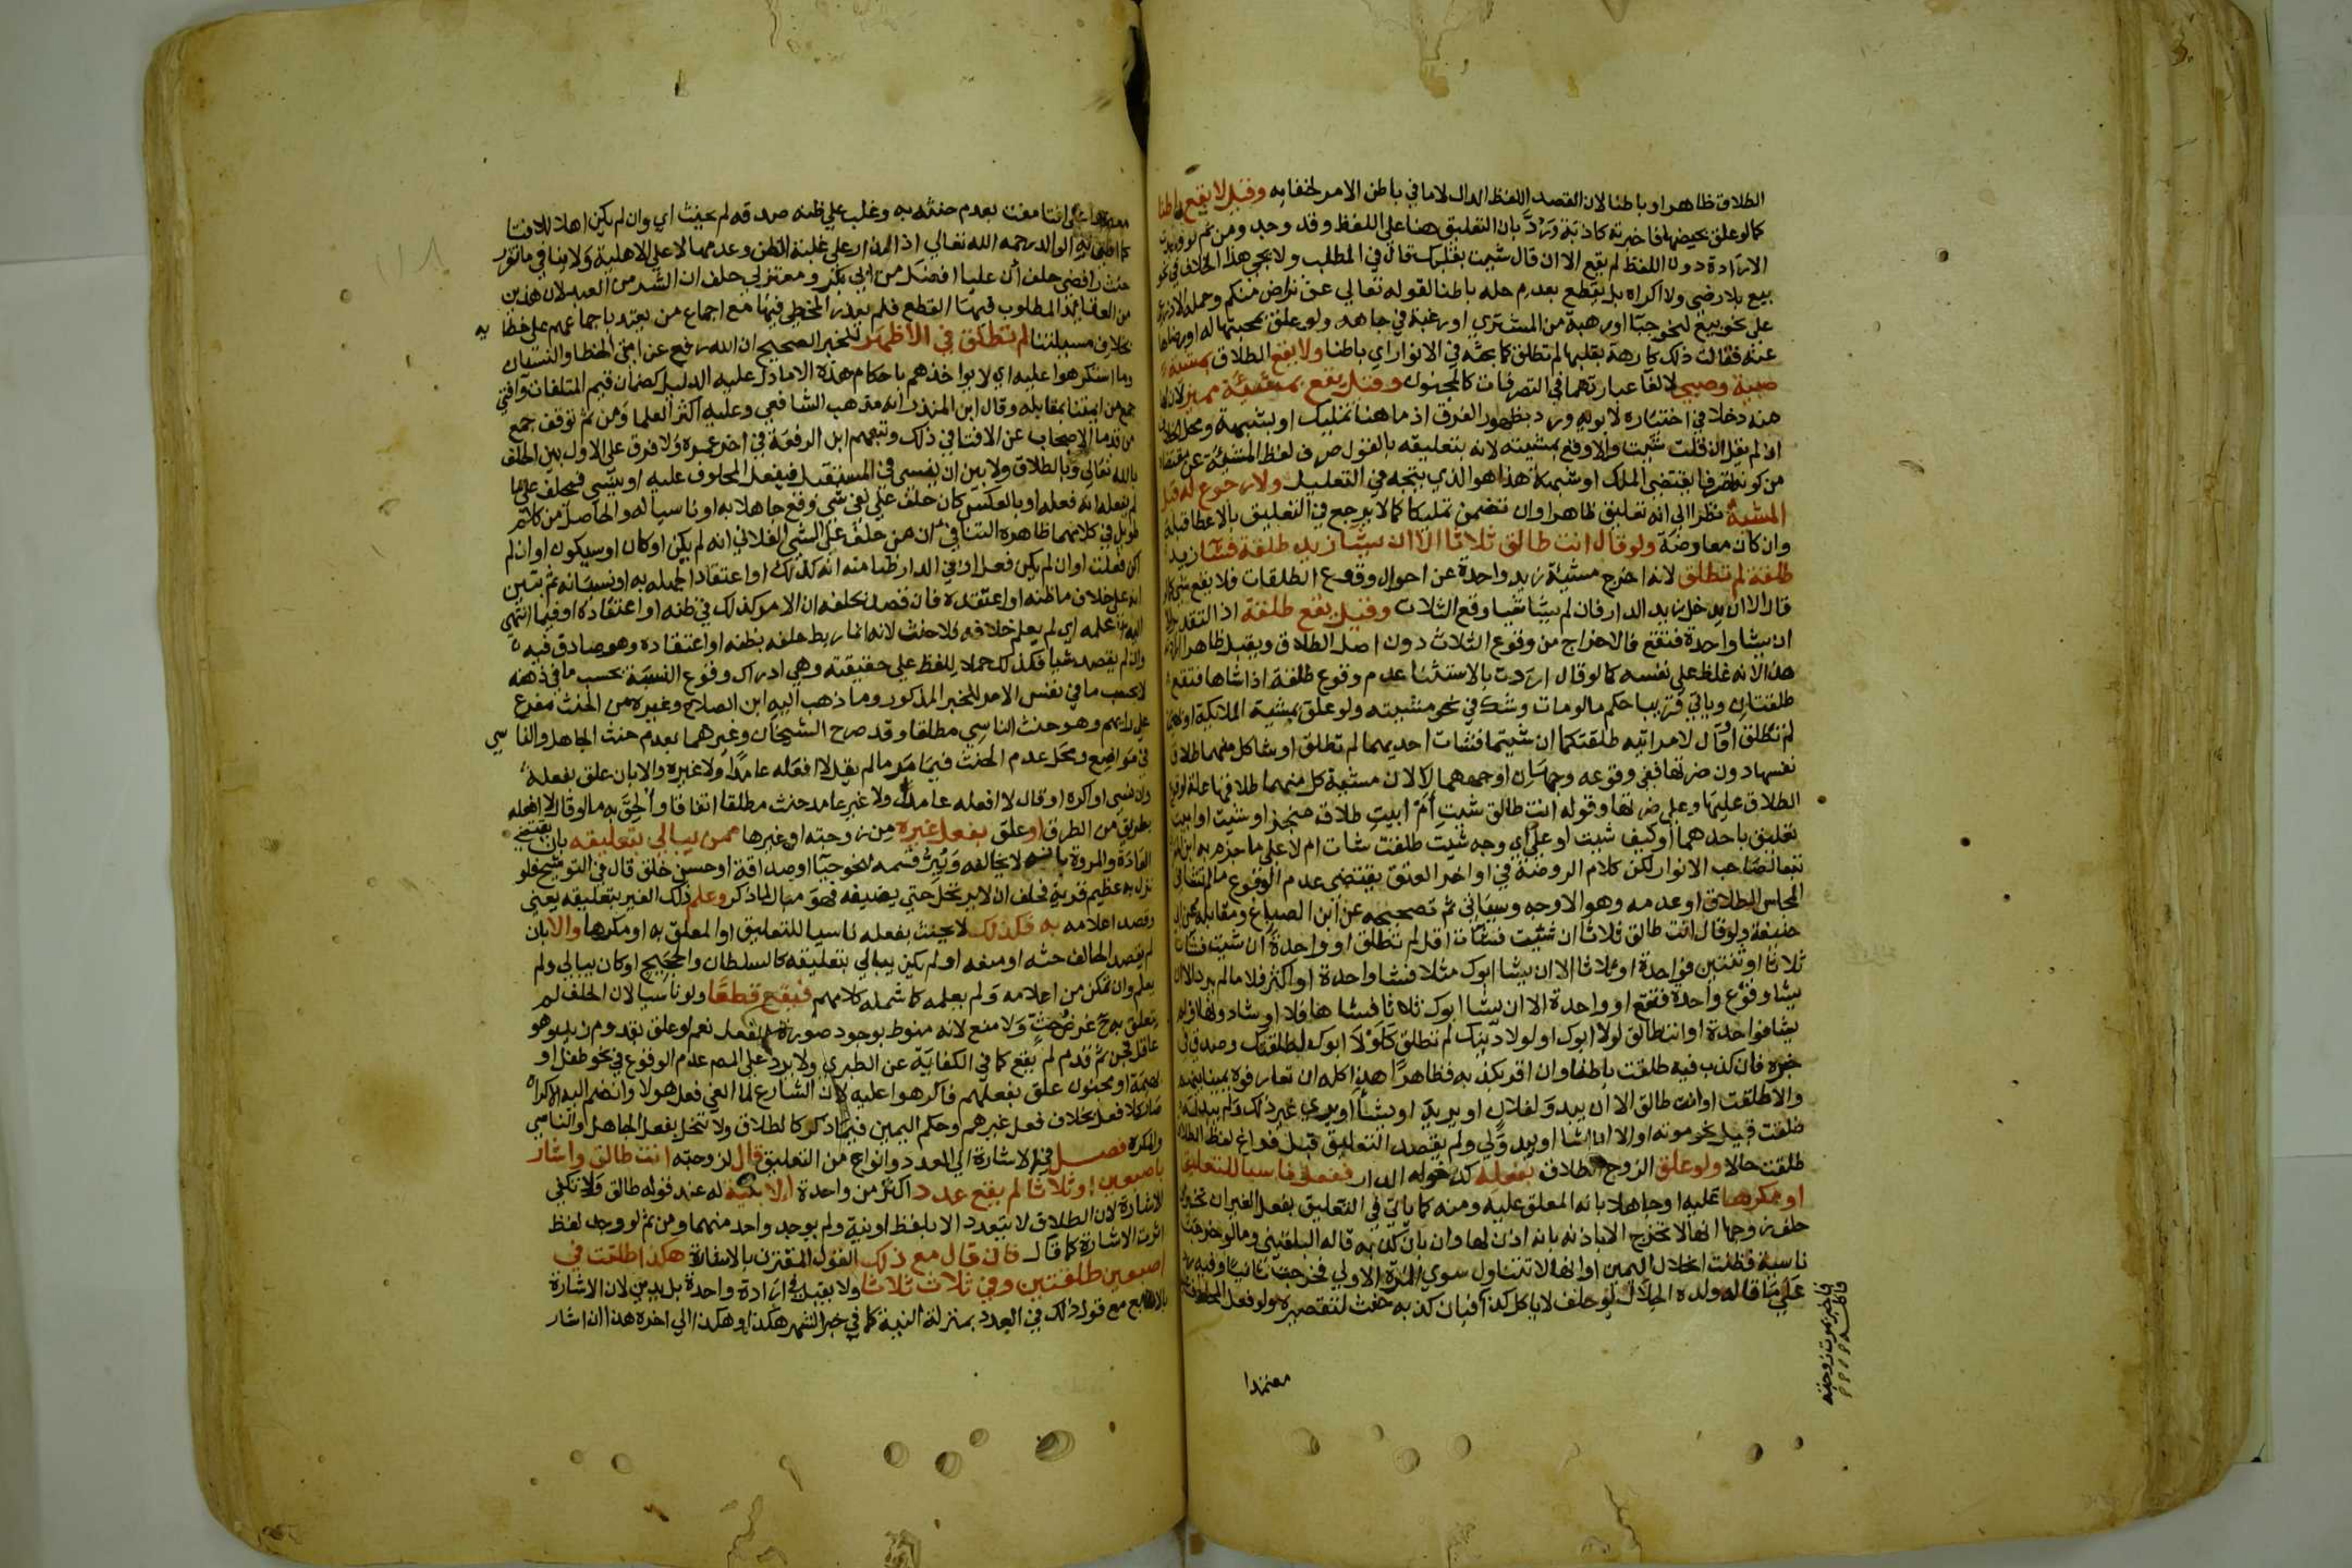 الطلاق ظاهرا وباطنا لان القصد اللفظ الدال لا ما في باطن الامر لخفائه وقيل لا يقع باطنا
كما لو علق بحيضها فاخبرته كاذبة ورد بان التعليق هنا على اللفظ وقد وجد ومن ثم لو وجدت
الارادة دون اللفظ لم يقع الا ان قال شئت بقلبك قال في المطلب ولا يجي هذا الخلاف في نحو
بيع بلا رضى ولا اكراه بل يقطع بعدم حله باطنا لقوله تعالي عن تراض منكم وحمله الاذرعي
على نحو بيع لنحو حيا او رهبة من المشتري او رغبة في جاهه ولو علق بمحبتها له او رضاها
عنه فقالت ذلك كارهة بقلبها لم تطلق كما بحثه في الانوار اي باطنا ولا يقع الطلاق بمشيئة
صبية وصبي لالغا عبارتهما في التصرفات كالمجنون وقيل يقع بمشيئة مميز لان لها
منه دخلا في اختياره لابويه ورد بظهور الفرق اذ ما هنا تمليك او يشبهه ومحل الخلاف
ان لم يقل ان قلت شئت والا وقع بمشيئته لانه بتعليقه بالقول صرف لفظ المشيئة عن مقتضاه
من كونه تصرفا يقتضي الملك او شبهه هذا هو الذي يتجه في التعليل ولا رجوع له قبل
المشيئة نظرا الي انه تعليق ظاهرا وان تضمن تمليكا كما لا يرجع في التعليق بالاعطا قبله
وان كان معاوضة ولو قال انت طالق ثلاثا الا ان يشا زيد طلقة فشا زيد
طلقة لم تطلق لانه اخرج مشيئة زيد واحدة عن احوال وقوع الطلقات فلا يقع شي كما لو
قال الا ان يدخل زيد الدار فان لم يشا شيا وقع الثلاث وقيل يقع طلقة اذ التقدير الا
ان يشا واحدة فتقع فالاخراج من وقوع الثلاث دون اصل الطلاق ويقبل ظاهرا ارادته
هذا لانه غلظ على نفسه كما لو قال اردت بالاستثنا عدم وقوع طلقة اذا شاها فتقع
طلقتان وياتي قريبا حكم ما لو مات وشك في نحو مشيئته ولو علق بمشية الملائكة او بهيمة
لم تطلق او قال لامراتيه طلقتكما ان شئتما فشات احديهما لم تطلق او شا كل منهما طلاق
نفسها دون ضرتها ففي وقوعه وجهان اوجههما لا لان مشيئة كل منهما طلاقهما علة لوقوع
الطلاق عليها وعلى ضرتها وقوله انت طالق شئت أم ابيت طلاق منجز او شئت او ابيت
تعليق باحدهما او كيف شيت او علي اي وجه شئت طلقت شات ام لا على ما جزم به ابن المقري
تبعا لصاحب الانوار لكن كلام الروضة في اواخر العتق يقتضي عدم الوقوع ما لم تشا في
المجلس الطلاق او عدمه وهو الاوجه وسياتي ثم تصحيحه عن ابن الصباغ ومقابله عن ابي
حنيفة ولو قال انت طالق ثلاثا ان شئت فشات اقل لم تطلق او واحدة ان شئت فشات
ثلاثا او ثنتين فواحدة او ثلاثا الا ان يشا ابوك مثلا فشا واحدة او اكثر فلا ما لم يرد الا ان
يشا وقوع واحدة فتقع او واحدة الا ان يشا ابوك ثلاثا فشاها فلا او شا دونها او لم
يشا فواحدة او انت طالق لولا ابوك او لولا دينك لم تطلق كلولا ابوك لطلقتك وصدق في
خبره فان كذب فيه طلقت باطنا وان اقر بكذبه فظاهرا هذا كله ان تعارفوه يمينا بينهم
والا طلقت او انت طالق الا ان يبدو لفلان او يريد او يشا او يري غير ذلك ولم يبد له
طلقت قبيل نحو موته او الا ان اشا او يبدو لي ولم يقصد التعليق قبل فراغ لفظ الطلاق
طلقت حالا ولو علق الزوج الطلاق بفعله كدخوله الدار ففعل ناسيا للتعليق
او مكرها عليه او جاهلا بانه المعلق عليه ومنه كما ياتي في التعليق بفعل الغير ان تخبر من
حلف زوجها انها لا تخرج الا باذنه بانه اذن لها وان بان كذبه قاله البلقيني وما لو خرجت
ناسية فظنت انحلال اليمين او انها لا تتناول سوي المرة الاولي فخرجت ثانيا وفيه رد
على ما قاله ولده الجلال لو حلف لا ياكل كذا فبان كذبه حنث لتقصيره ولو فعل المحلوف
فاخبر بموت زوجته
فاكله
معتمدا
معتمدا على افتا مفت بعدم حنثه به وغلب علي ظنه صدقه لم يحنث اي وان لم يكن اهلا للافتا
كما افتى به الوالد رحمه الله تعالي اذ المدار على غلبة الظن وعدمها لا على الاهلية ولا ينافي ما تقرر
حنث رافضي حلف أن عليا افضل من ابي بكر ومعتزلي حلف ان الشر من العبد لان هذين
من العقايد المطلوب فيها القطع فلم يعذر المخطي فيها مع اجماع من يعتد باجماعهم على خطايه
بخلاف مسيلتنا لم تطلق في الاظهر للخبر الصحيح ان الله رفع عن امتي الخطا والنسيان
وما استكرهوا عليه اي لا يواخذهم باحكام هذه الا ما دل عليه الدليل كضمان قيم المتلفات وافتى
جمع من ايمتنا بمقابله وقال ابن المنذر انه مذهب الشافعي وعليه اكثر العلما ومن ثم توقف جمع
من قدما الاصحاب عن الافتا في ذلك وتبعهم ابن الرفعة في اخر عمره ولا فرق على الاول بين الحلف
بالله تعالى وبالطلاق ولا بين ان ينسي في المستقبل فيفعل المحلوف عليه او ينسي فيحلف علي ما
لم يفعله انه فعله او بالعكس كان حلف علي نفي شي وقع جاهلا به او ناسيا له والحاصل من كلام
طويل في كلامهما ظاهره التنافي أن من حلف على الشي الفلاني انه لم يكن او كان او سيكون او ان لم
اكن فعلت او ان لم يكن فعل او في الدار ظنا منه انه كذلك او اعتقادا لجهله به او نسيانه ثم تبين
انه على خلاف ما ظنه او اعتقده فان قصد بحلفه ان الامر كذلك في ظنه او اعتقاده او فيما انتهي
اليه علمه اي لم يعلم خلافه فلا حنث لانه انما ربط حلفه بظنه او اعتقاده وهو صادق فيه
وان لم يقصد شيا فكذلك حملا للفظ علي حقيقته وهي ادراك وقوع النسبة بحسب ما في ذهنه
لا بحسب ما في نفس الامر للخبر المذكور وما ذهب اليه ابن الصلاح وغيره من الحنث مفرع
علي رايهم وهو حنث الناسي مطلقا وقد صرح الشيخان وغيرهما بعدم حنث الجاهل والناسي
في مواضع ومحل عدم الحنث فيما مر ما لم يقل لا افعله عامدا ولا غيره والا بان علق بفعله
وان نسي او اكره او قال لا افعله عامدا ولا غير عامد حنث مطلقا اتفاقا وألحق به ما لو قال لا افعله
بطريق من الطرق او علق بفعل غيره من زوجته او غيرها ممن يبالي بتعليقه بان يقتضي
العادة والمروة بانه لا يخالفه ويبر قسمه لنحو حيا او صداقة او حسن خلق قال في التوشيح فلو
نزل به عظيم قرية فحلف ان لا يرتحل حتي يضيفه فهو مثال لما ذكر وعلم ذلك الغير بتعليقه يعني
وقصد اعلامه به فكذلك لا يحنث بفعله ناسيا للتعليق او المعلق به او مكرها والا بان
لم يقصد الحالف حثه او منعه او لم يكن يبالي بتعليقه كالسلطان والحجيج او كان يبالي ولم
يعلم وان تمكن من اعلامه ولم يعلمه كما شمله كلامهم فيقع قطعا ولو ناسيا لان الحلف لم
يتعلق به ح غرض حث ولا منع لانه منوط بوجود صورة الفعل نعم لو علق بقدوم زيد وهو
عاقل فجن ثم قدم لم يقع كما في الكفاية عن الطبري ولا يرد على المصـ عدم الوقوع في نحو طفل او
بهيمة او مجنون علق بفعلهم فاكرهوا عليه لان الشارع لما الغى فعل هولا وانضم اليه الاكراه
صار كلا فعل بخلاف فعل غيرهم وحكم اليمين فيما ذكر كالطلاق ولا تنحل بفعل الجاهل والناسي
والمكره فصل في الاشارة الي العدد وانواع من التعليق قال لزوجته انت طالق واشار
باصبعين او ثلاثا لم يقع عدد اكثر من واحدة الا بنية له عند قوله طالق ولا تكفي
الاشارة لان الطلاق لا يتعدد الا بلفظ او نية ولم يوجد واحد منهما ومن ثم لو وجد لفظ
اثرت الاشارة كما قال فان قال مع ذلك القول المقترن بالاشارة هكذا طلقت في
اصبعين طلقتين وفي ثلاث ثلاثا ولا يقبل في ارادة واحدة بل يدين لان الاشارة
بالاصابع مع قول ذلك في العدد بمنزلة النية كما في خبر الشهر هكذا وهكذا الي اخره هذا ان اشار